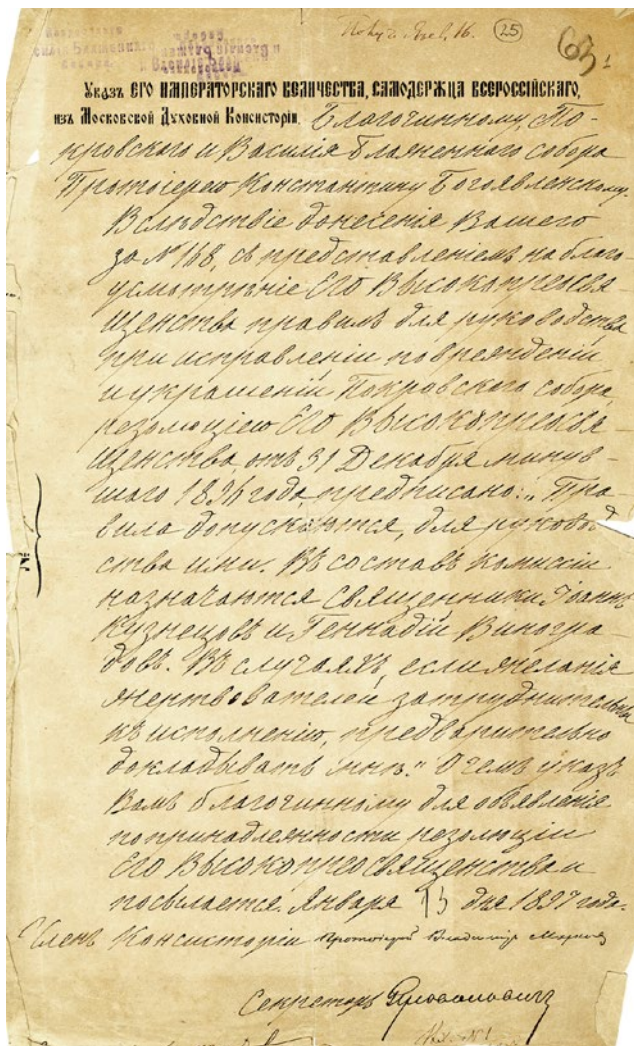 Янв. 16. 25
63 1
Указъ ЕГО ИМПЕРАТОРСКАГО ВЕЛИЧЕСТВА, САМОДЕРЖЦА ВСЕРОССІЙСКАГО,
изъ Московской Духовной Консисторіи, Благочинному, По-
кровскаго и Василія Блаженнаго собора
Протоіерею Константину Богоявленскому.
Вслѣдствіе донесенія Вашего
за № 168, съ представленіемъ на благо-
усмотрѣніе Его Высокопреосвя-
щенства правилъ для руководства
при исправленіи поврежденій
и украшеніи Покровскаго собора,
резолюціею Его Высокопреосвя-
щенства, отъ 31 Декабря минув-
шаго 1896 года, предписано: „Пра-
вила допускаются, для руковод
ства ими. Въ составъ комиссіи
назначаются Священники Іоаннъ
Кузнецовъ и Геннадій Виногра-
довъ. Въ случаяхъ, если желанія
жертвователей затруднительны
къ исполненію, предварительно
докладывать мнѣ." О чемъ указъ
Вамъ благочинному для объявленія
по принадлежности резолюціи
Его Высокопреосвященства и
посылается. Января 13 дня 1897 года.
Членъ Консисторіи Протоіерей Владиміръ
Секретарь